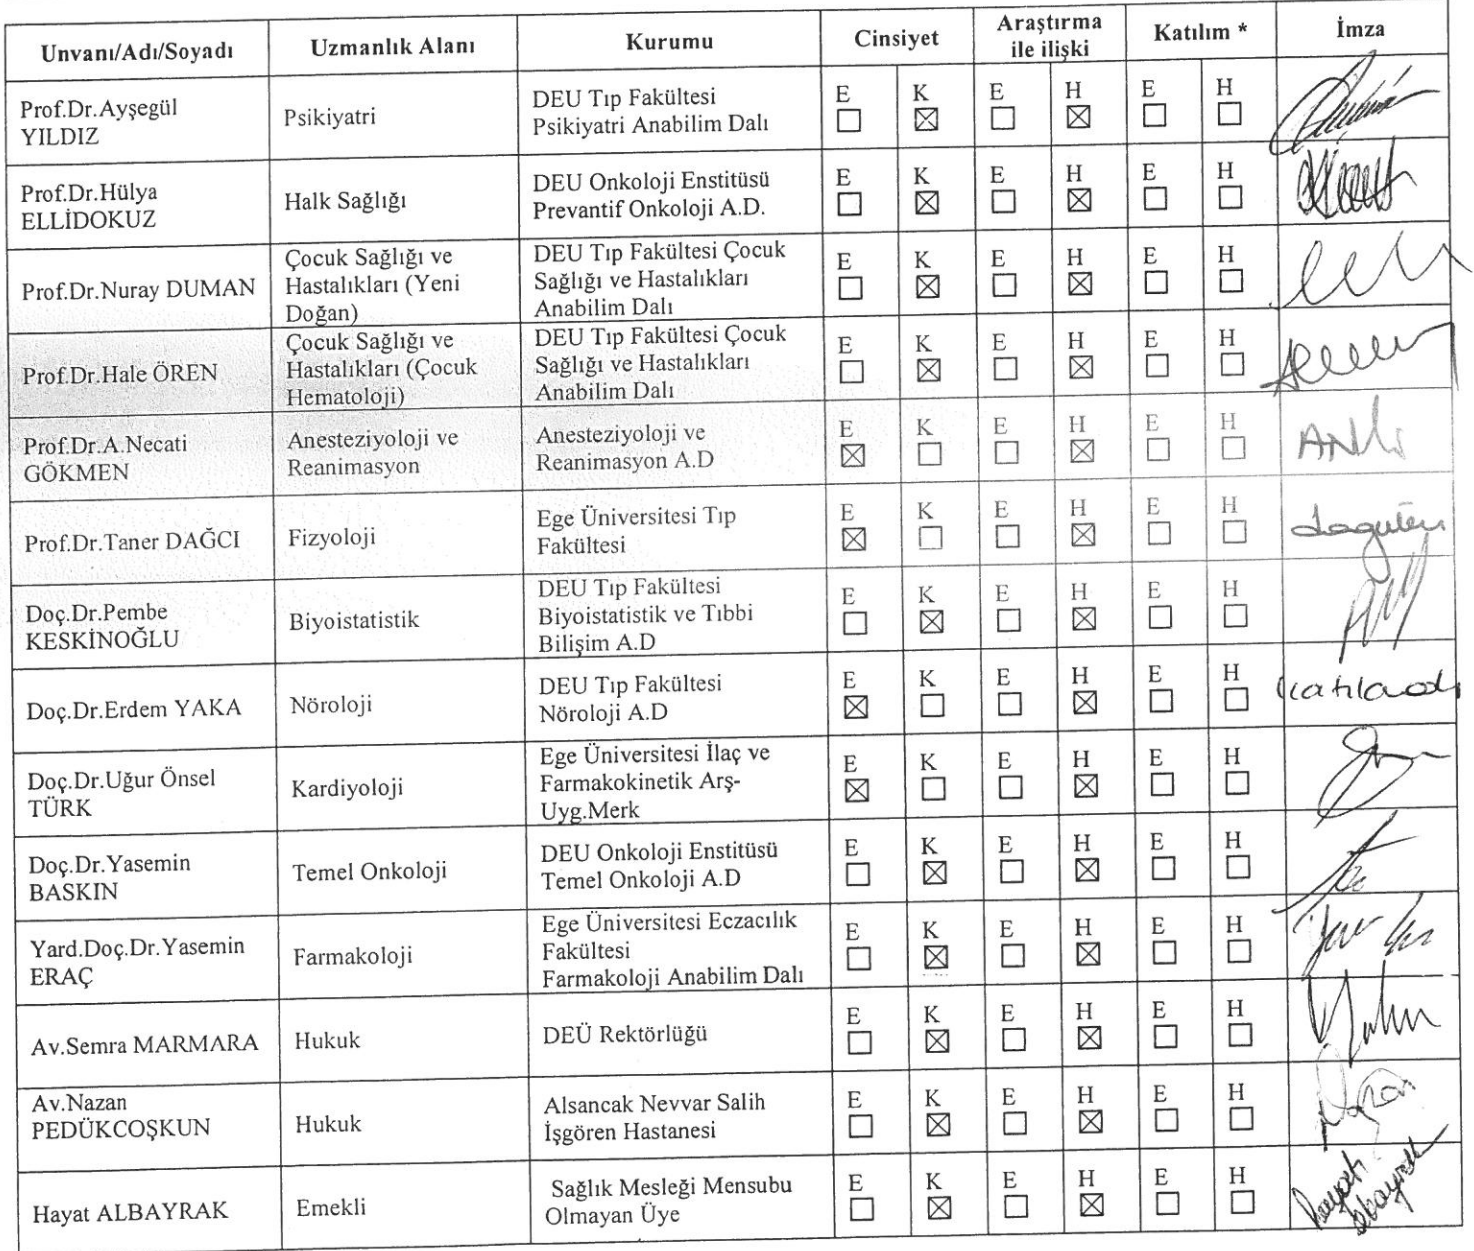 Unvanı/Adı/Soyadı Uzmanlık Alanı Kurumu Cinsiyet Araştırma ile ilişki Katılım * İmza
Prof.Dr.Ayşegül
YILDIZ
Psikiyatri
DEU Tıp Fakültesi
Psikiyatri Anabilim Dalı
E K E H E H
☐ ☒ ☐ ☒ ☐ ☐
Prof.Dr.Hülya
ELLİDOKUZ
Halk Sağlığı
DEU Onkoloji Enstitüsü
Prevantif Onkoloji A.D.
E K E H E H
☐ ☒ ☐ ☒ ☐ ☐
Prof.Dr.Nuray DUMAN
Çocuk Sağlığı ve
Hastalıkları (Yeni
Doğan)
DEU Tıp Fakültesi Çocuk
Sağlığı ve Hastalıkları
Anabilim Dalı
E K E H E H
☐ ☒ ☐ ☒ ☐ ☐
Prof.Dr.Hale ÖREN
Çocuk Sağlığı ve
Hastalıkları (Çocuk
Hematoloji)
DEU Tıp Fakültesi Çocuk
Sağlığı ve Hastalıkları
Anabilim Dalı
E K E H E H
☐ ☒ ☐ ☒ ☐ ☐
Prof.Dr.A.Necati
GÖKMEN
Anesteziyoloji ve
Reanimasyon
Anesteziyoloji ve
Reanimasyon A.D
E K E H E H
☒ ☐ ☐ ☒ ☐ ☐
Prof.Dr.Taner DAĞCI
Fizyoloji
Ege Üniversitesi Tıp
Fakültesi
E K E H E H
☒ ☐ ☐ ☒ ☐ ☐
Doç.Dr.Pembe
KESKİNOĞLU
Biyoistatistik
DEU Tıp Fakültesi
Biyoistatistik ve Tıbbi
Bilişim A.D
E K E H E H
☐ ☒ ☐ ☒ ☐ ☐
Doç.Dr.Erdem YAKA
Nöroloji
DEU Tıp Fakültesi
Nöroloji A.D
E K E H E H
☒ ☐ ☐ ☒ ☐ ☐
Doç.Dr.Uğur Önsel
TÜRK
Kardiyoloji
Ege Üniversitesi İlaç ve
Farmakokinetik Arş-
Uyg.Merk
E K E H E H
☒ ☐ ☐ ☒ ☐ ☐
Doç.Dr.Yasemin
BASKIN
Temel Onkoloji
DEU Onkoloji Enstitüsü
Temel Onkoloji A.D
E K E H E H
☐ ☒ ☐ ☒ ☐ ☐
Yard.Doç.Dr.Yasemin
ERAÇ
Farmakoloji
Ege Üniversitesi Eczacılık
Fakültesi
Farmakoloji Anabilim Dalı
E K E H E H
☐ ☒ ☐ ☒ ☐ ☐
Av.Semra MARMARA
Hukuk
DEÜ Rektörlüğü
E K E H E H
☐ ☒ ☐ ☒ ☐ ☐
Av.Nazan
PEDÜKCOŞKUN
Hukuk
Alsancak Nevvar Salih
İşgören Hastanesi
E K E H E H
☐ ☒ ☐ ☒ ☐ ☐
Hayat ALBAYRAK
Emekli
Sağlık Mesleği Mensubu
Olmayan Üye
E K E H E H
☐ ☒ ☐ ☒ ☐ ☐